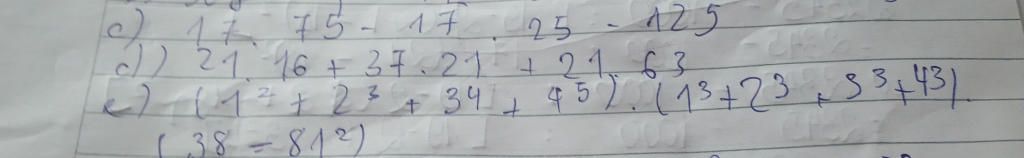 c) 17. 75 - 17 . 25 - 125
d) 21. 16 + 37.21 + 21. 63
e) (1² + 2³ + 3⁴ + 4⁵). (1³+2³ + 3³+4³).
(38 - 81²)